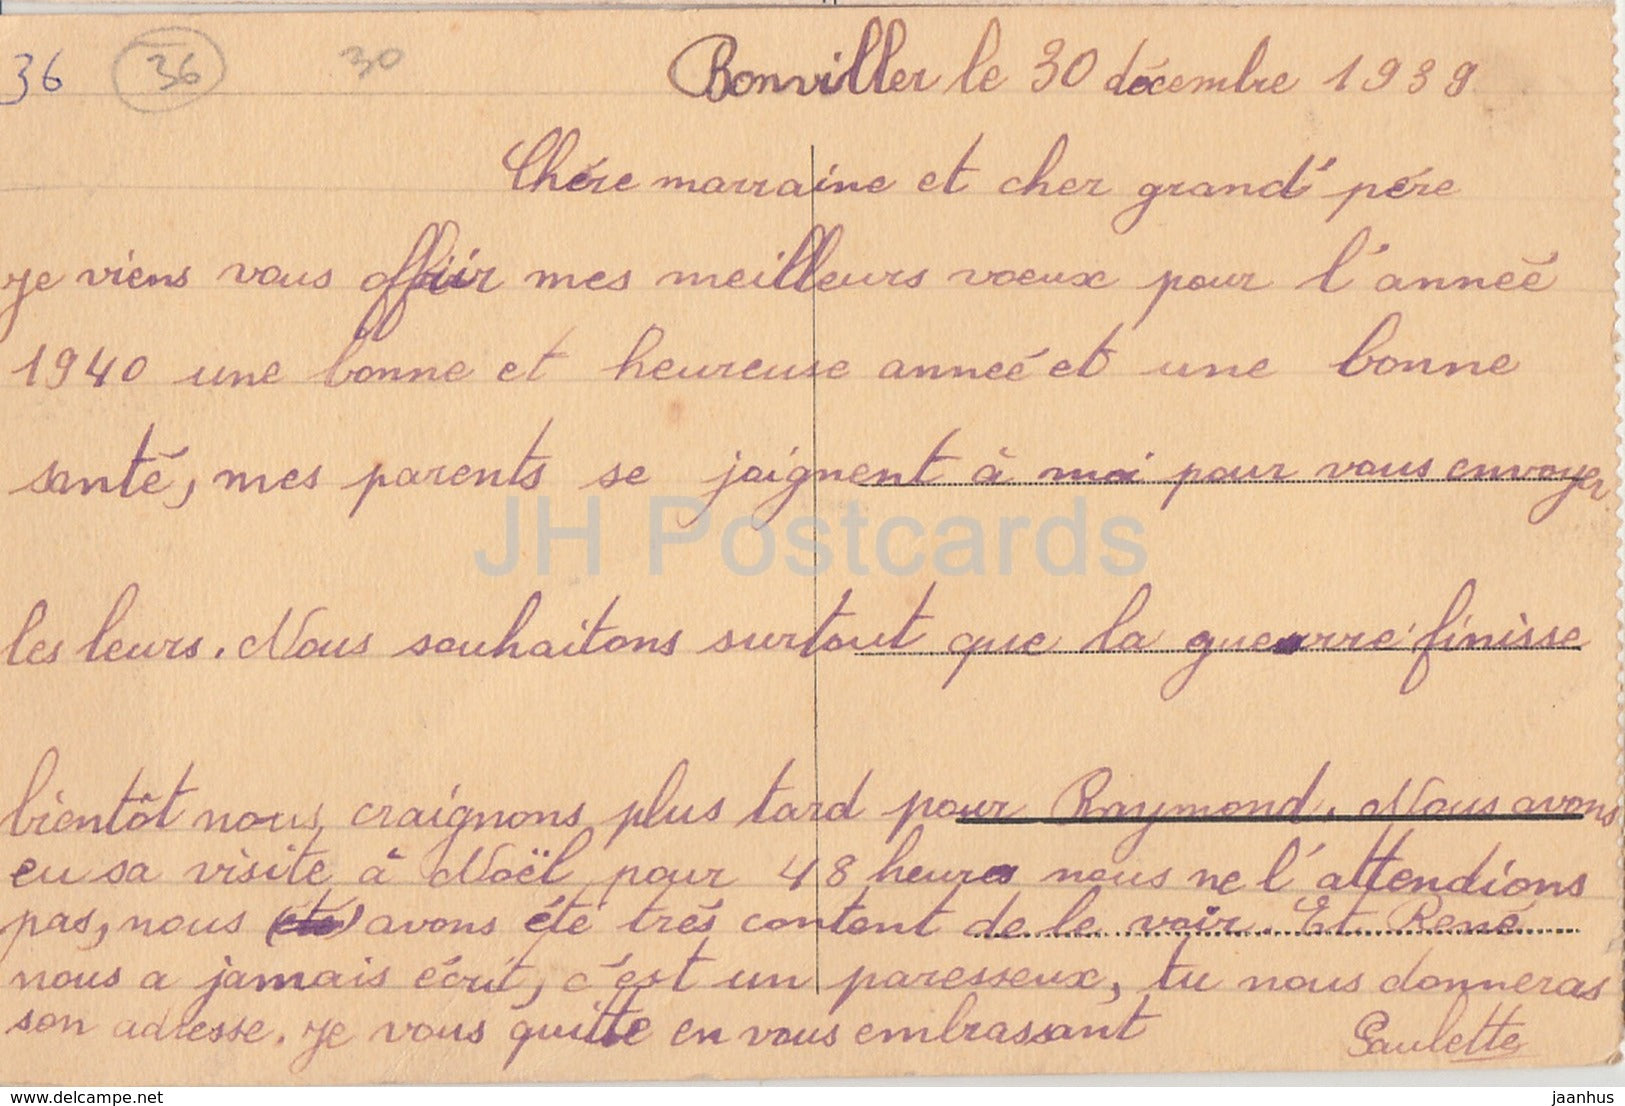 36 36 30 Bonviller le 30 décembre 1939
Chére marraine et cher grand' pére
je viens vous offrir mes meilleurs voeux pour l'anneé
1940 une bonne et heureuse anneé et une bonne
santé, mes parents se joignent à moi pour vous envoyer
JH Postcards
les leurs. Nous souhaitons surtout que la guerre finisse
bientôt nous craignons plus tard pour Raymond. Nous avons
eu sa visite à Noël pour 48 heures nous ne l'attendions
pas, nous (été) avons été trés content de le voir. Et René
nous a jamais écrit, c'est un paresseux, tu nous donneras
son adresse. je vous quitte en vous embrassant Paulette
delcampe.net
jaanhus